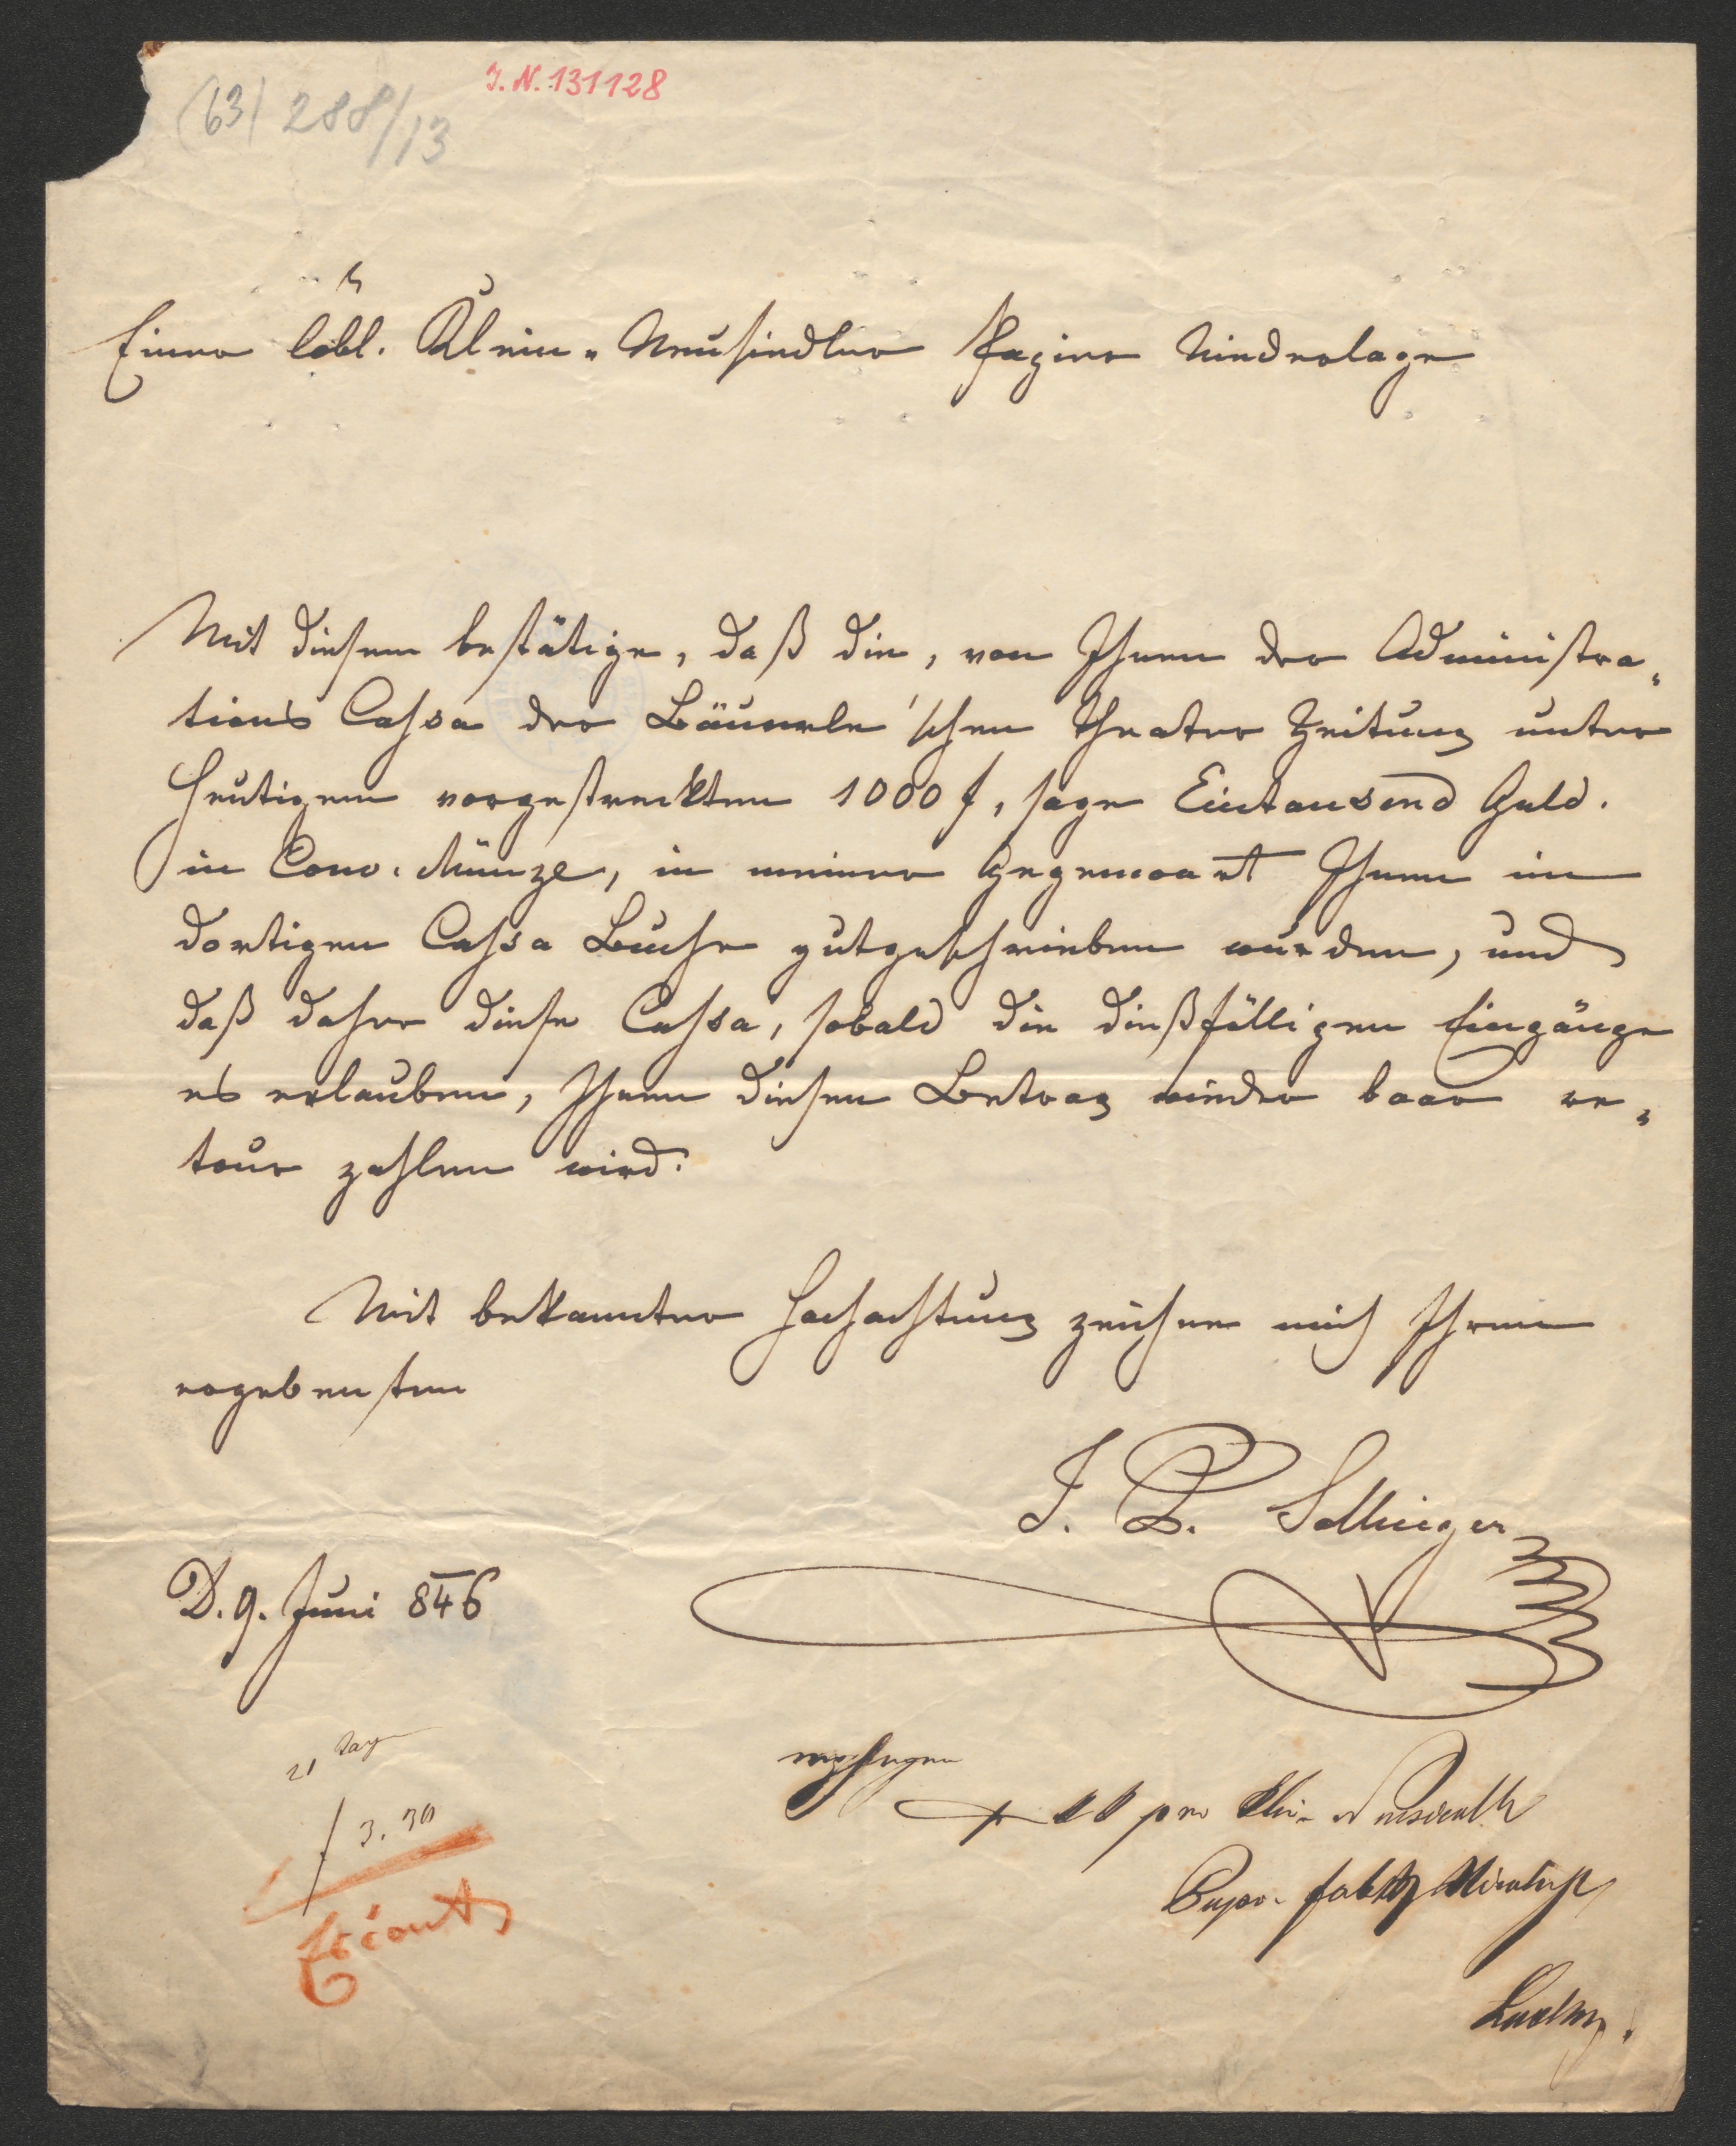 (63) 288/13
I.N. 131128
Einer löbl. Klein-Neusiedler Papier Niederlage
Mit diesem bestätige, daß die, von Ihnen der Administra-
tions Cassa der Bäuerle'schen Theater Zeitung unter
Heutigem vorgestreckten 1000 f, sage Eintausend Guld.
in Conv. Münze, in meiner Gegenwart Ihnen im
dortigen Cassa Buche gutgeschrieben wurden, und
daß daher diese Cassa, sobald die dießfälligen Eingänge
es erlauben, Ihnen diesen Betrag wieder baar re-
tour zahlen wird.
Mit bekannter Hochachtung zeichne mich Ihrem
ergebensten
J. P. Sollinger
D. 9. Juni 846
21 Tage
f 3.30
empfangen
pro
Papier fabriks